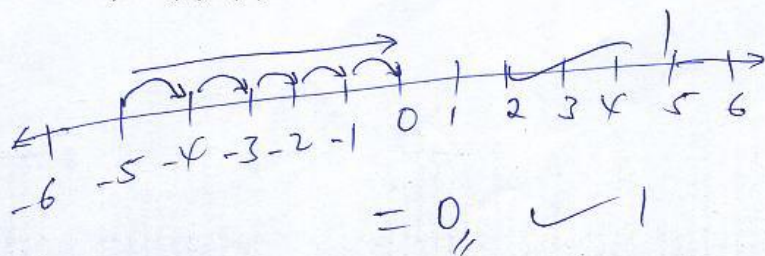 1
-6 -5 -4 -3 -2 -1 0 1 2 3 4 5 6
= 0 ✓ 1